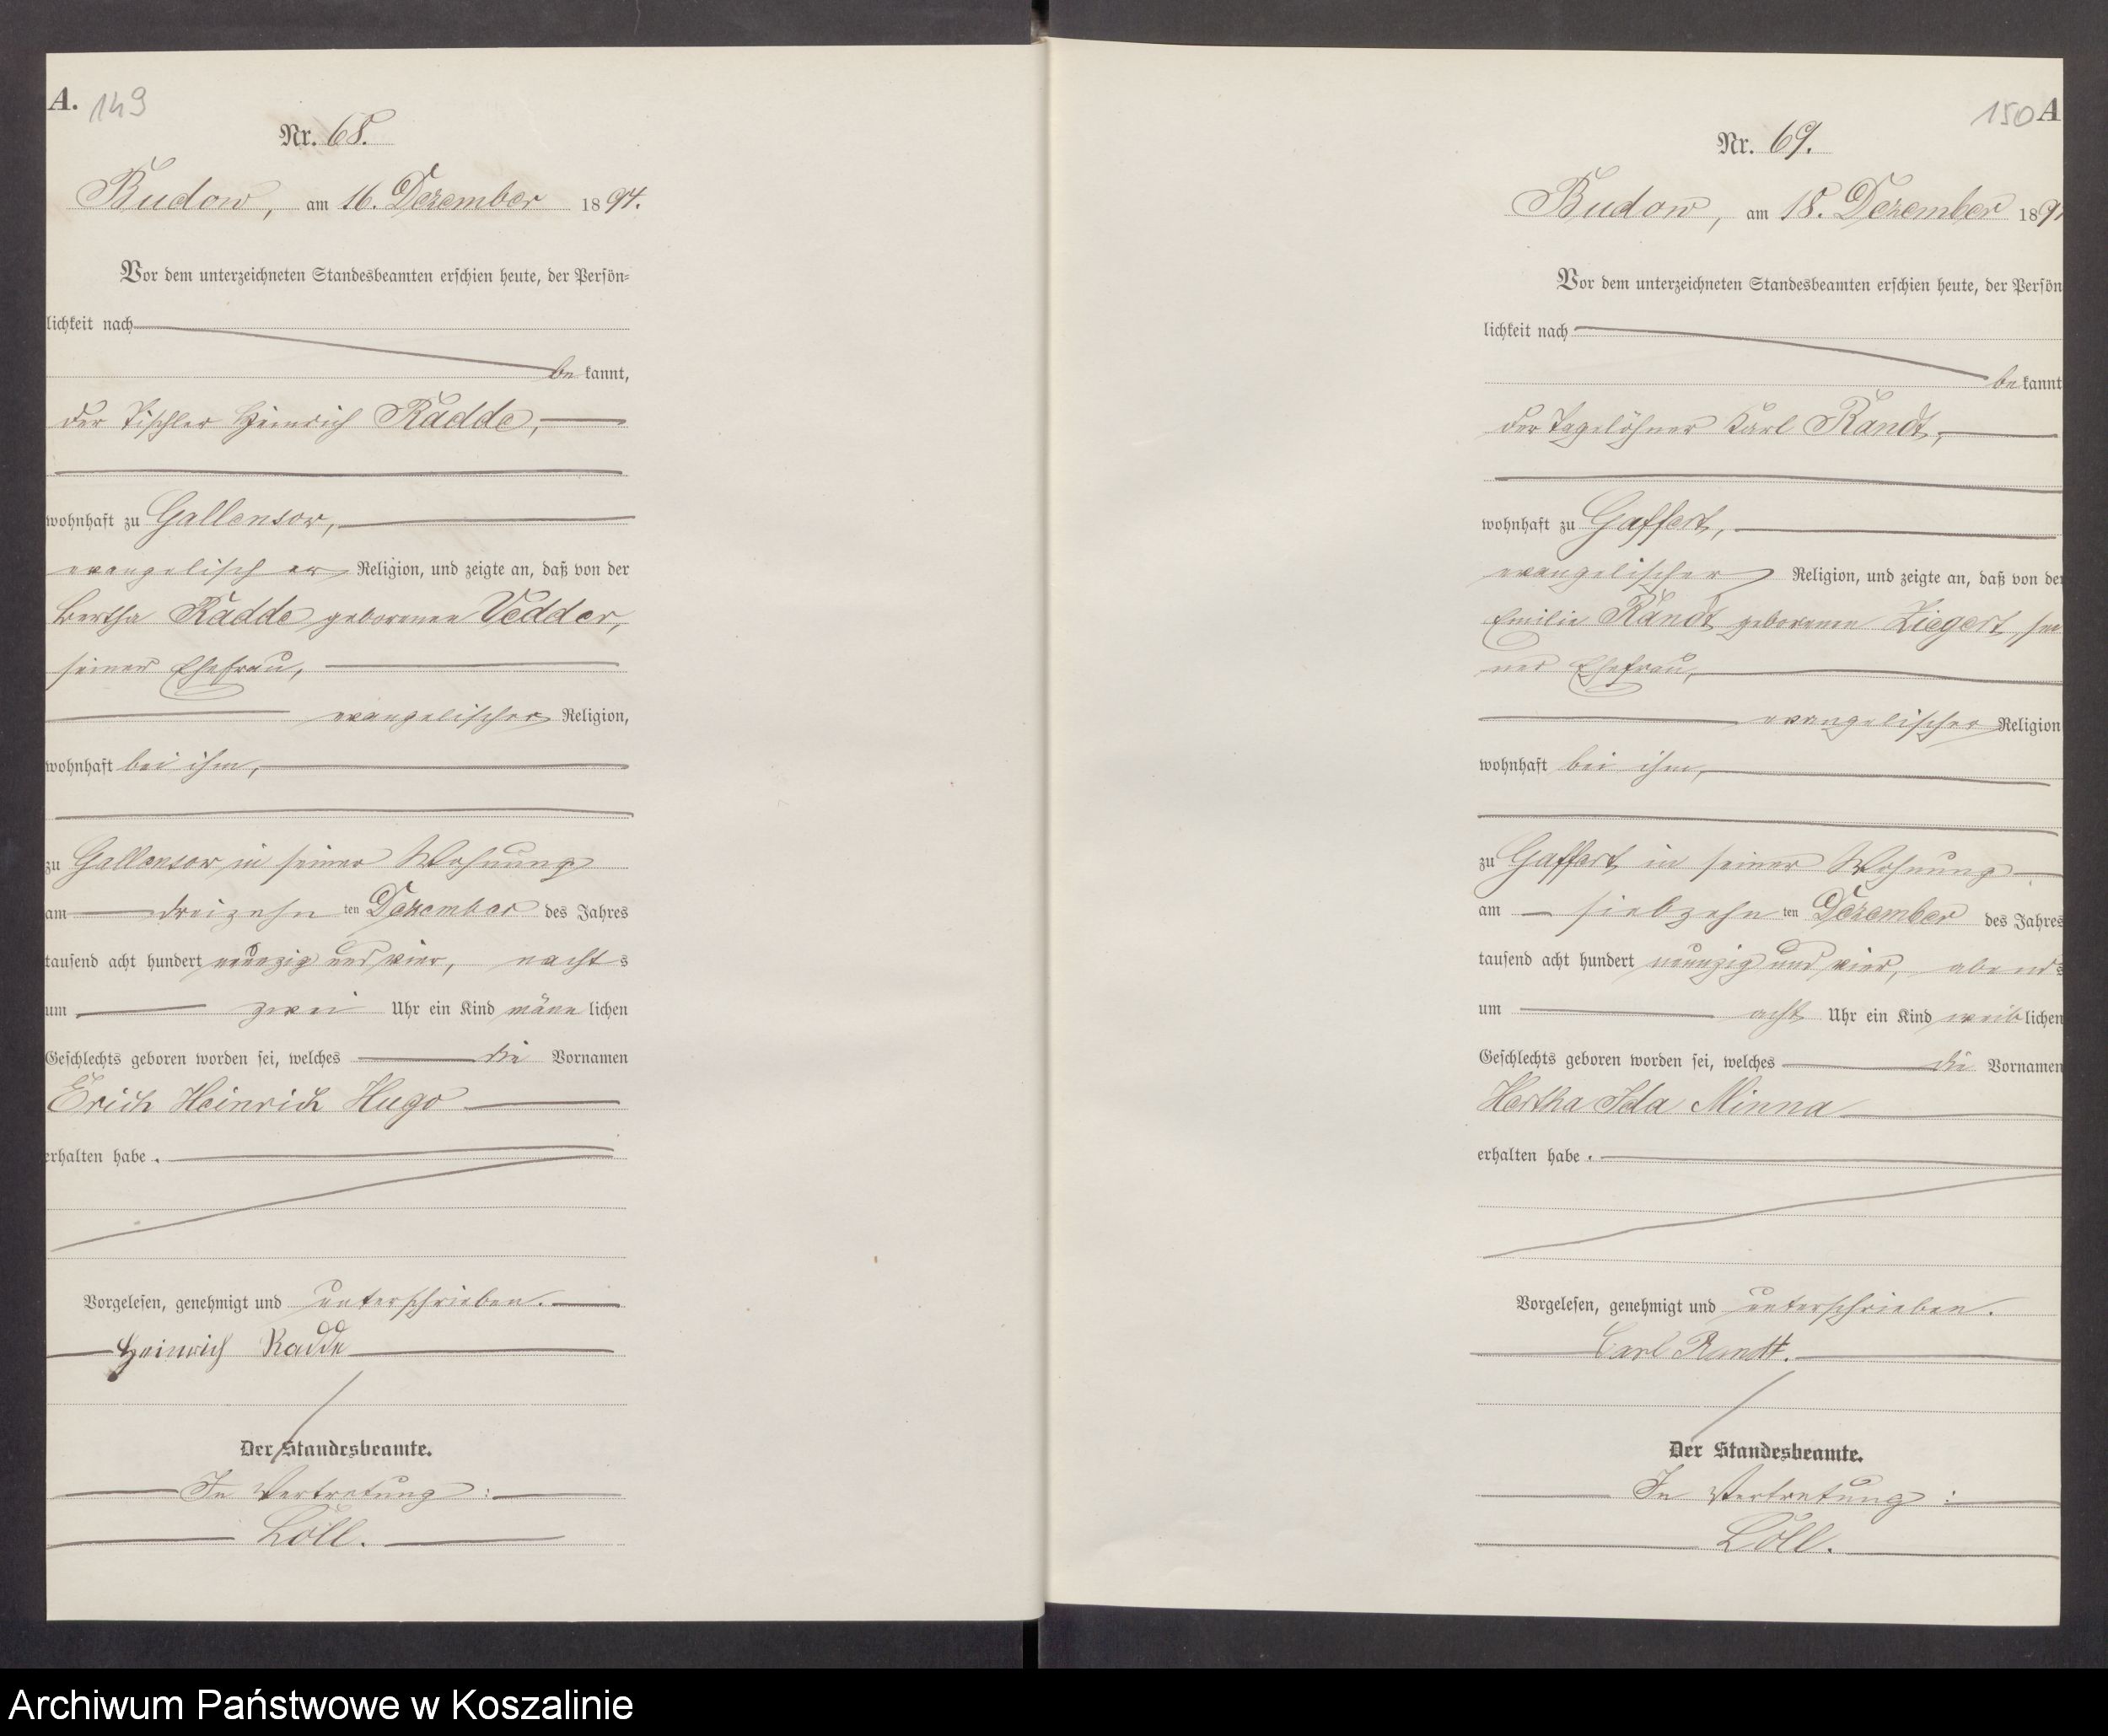 A. 149
Nr. 68.
Budow, am 16. Dezember 1894.
Vor dem unterzeichneten Standesbeamten erschien heute, der Persön-
lichkeit nach
be kannt,
der Tischler Heinrich Radde,
wohnhaft zu Gallensow,
evangelischer Religion, und zeigte an, daß von der
Bertha Radde geborenen Vedder,
seiner Ehefrau,
evangelischer Religion,
wohnhaft bei ihm,
zu Gallensow in seiner Wohnung
am dreizehn ten Dezember des Jahres
tausend acht hundert neunzig und vier, nachts
um zwei Uhr ein Kind männlichen
Geschlechts geboren worden sei, welches die Vornamen
Erich Heinrich Hugo
erhalten habe.
Vorgelesen, genehmigt und unterschrieben.
Heinrich Radde
Der Standesbeamte.
In Vertretung:
Löll.
150 A
Nr. 69.
Budow, am 18. Dezember 189
Vor dem unterzeichneten Standesbeamten erschien heute, der Persön
lichkeit nach
be kannt
der Tagelöhner Karl Randt,
wohnhaft zu Gaffert,
evangelischer Religion, und zeigte an, daß von der
Emilie Randt geborenen Ziegert, sei
ner Ehefrau,
evangelischer Religion
wohnhaft bei ihm,
zu Gaffert in seiner Wohnung
am siebzehn ten Dezember des Jahres
tausend acht hundert neunzig und vier, abends
um acht Uhr ein Kind weiblichen
Geschlechts geboren worden sei, welches die Vornamen
Hertha Ida Minna
erhalten habe.
Vorgelesen, genehmigt und unterschrieben.
Carl Randt.
Der Standesbeamte.
In Vertretung:
Löll.
Archiwum Państwowe w Koszalinie